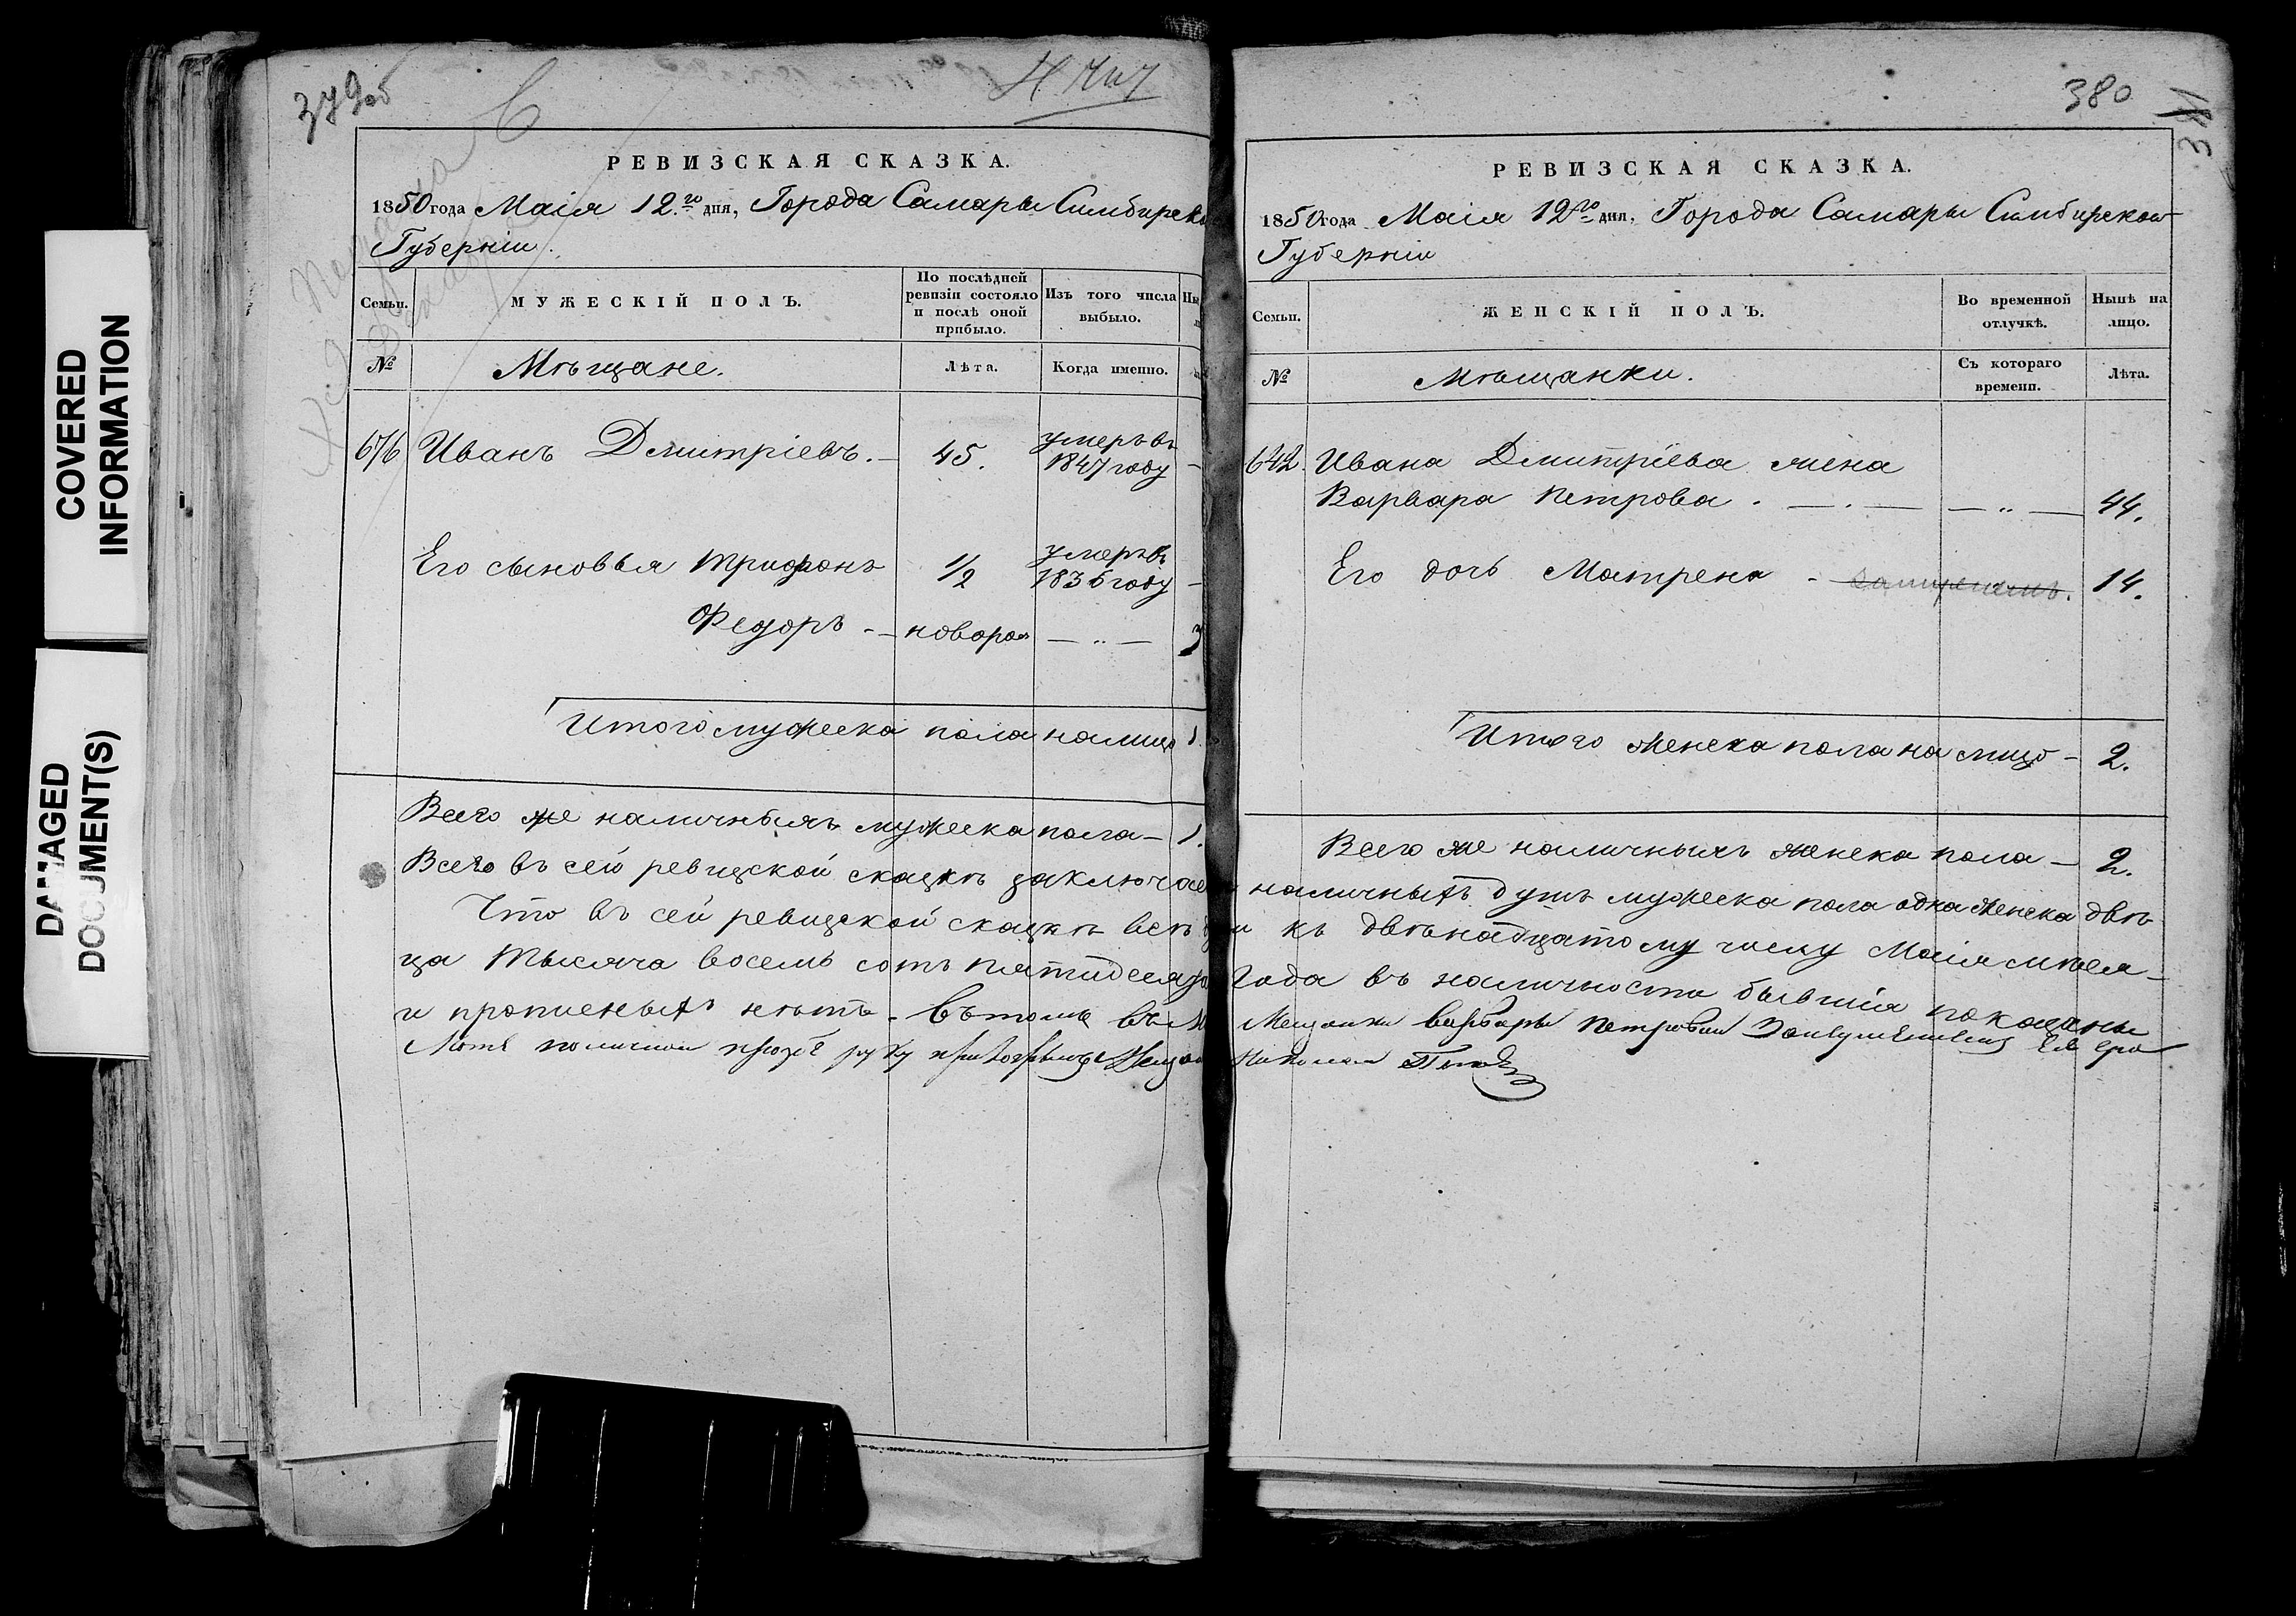 COVERED
INFORMATION
DAMAGED
DOCUMENT(S)
379об
РЕВИЗСКАЯ СКАЗКА.
1850 года Маія 12.го дня, Города Самары Симбирско
Губерніи.
Семьи. МУЖЕСКІЙ ПОЛЪ. По послѣдней ревизіи состояло и послѣ оной прибыло. Изъ того числа выбыло. Ны
№ Мѣщане. Лѣта. Когда именно.
676 Иванъ Дмитріевъ. — 45. умеръ въ 1847 году —
Его сыновья Трифонъ 1/2 умеръ въ 1836 году —
Федоръ - — новорож — „ — 3
Итого мужеска пола налицо 1.
Всего же наличныхъ мужеска пола — 1.
Всего въ сей ревизской сказкѣ заключае
Что въ сей ревизской сказкѣ всѣ
ца тысяча восемь сотъ пятидеся
и прописныхъ нѣтъ. въ томъ
380
381
РЕВИЗСКАЯ СКАЗКА.
1850 года Маія 12го дня. Города Самары Симбирской
Губерніи
Семьи. ЖЕНСКІЙ ПОЛЪ. Во временной отлучкѣ. Нынѣ на лицо.
№ Мѣщанки. Съ котораго времени. Лѣта.
642. Ивана Дмитріева жена
Варвара Петрова . — . — — „ — 44.
Его дочь Матрена - замужемъ. 14.
Итого женска пола на лицо — 2.
Всего же наличныхъ женска пола — 2.
наличныхъ душъ мужеска пола одна женска двѣ
и къ двѣнадцатому числу Маія мѣся-
года въ наличности бывшія показаны
Мещанки Варвары Петровой
Николай